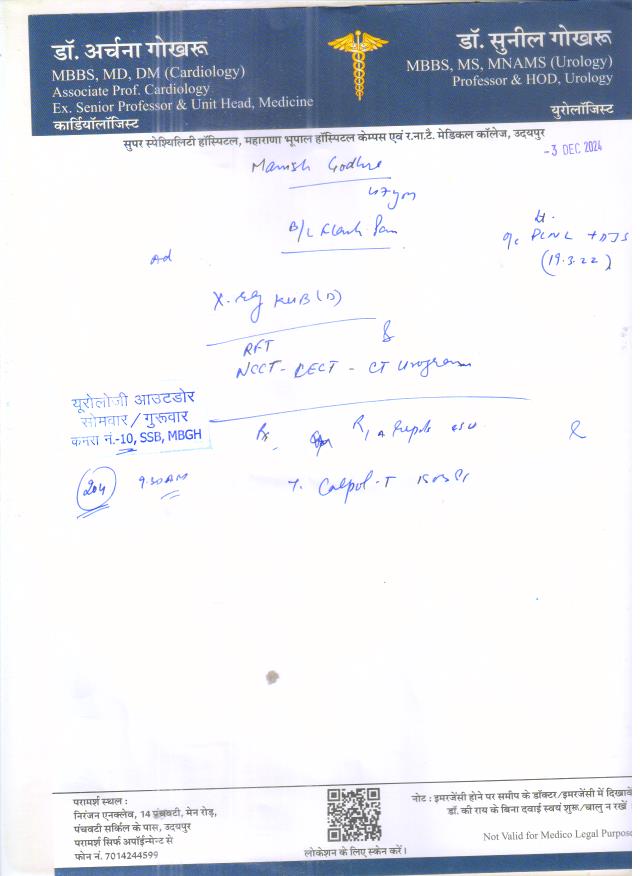 डॉ. अर्चना गोखरू
MBBS, MD, DM (Cardiology)
Associate Prof. Cardiology
Ex. Senior Professor & Unit Head, Medicine
कार्डियॉलॉजिस्ट
डॉ. सुनील गोखरू
MBBS, MS, MNAMS (Urology)
Professor & HOD, Urology
युरोलॉजिस्ट
सुपर स्पेश्यिलिटी हॉस्पिटल, महाराणा भूपाल हॉस्पिटल केम्पस एवं र.ना.टै. मेडिकल कॉलेज, उदयपुर
-3 DEC 2024
Manish
B/L Flank Pain
PCNL + DJS
(19.3.22)
Ad
X-Ray KUB (D)
RFT
NCCT - CECT - CT Urogram
यूरोलोजी आउटडोर
सोमवार / गुरूवार
कमरा नं.-10, SSB, MBGH
204
9.30 AM
Rx
T. Calpol-T
परामर्श स्थल :
निरंजन एनक्लेव, 14 पंचवटी, मेन रोड़,
पंचवटी सर्किल के पास, उदयपुर
परामर्श सिर्फ अपॉईन्मेन्ट से
फोन नं. 7014244599
लोकेशन के लिए स्केन करें।
नोट : इमरजेंसी होने पर समीप के डॉक्टर/इमरजेंसी में दिखावे
डॉ. की राय के बिना दवाई स्वयं शुरू/चालु न रखें
Not Valid for Medico Legal Purpose